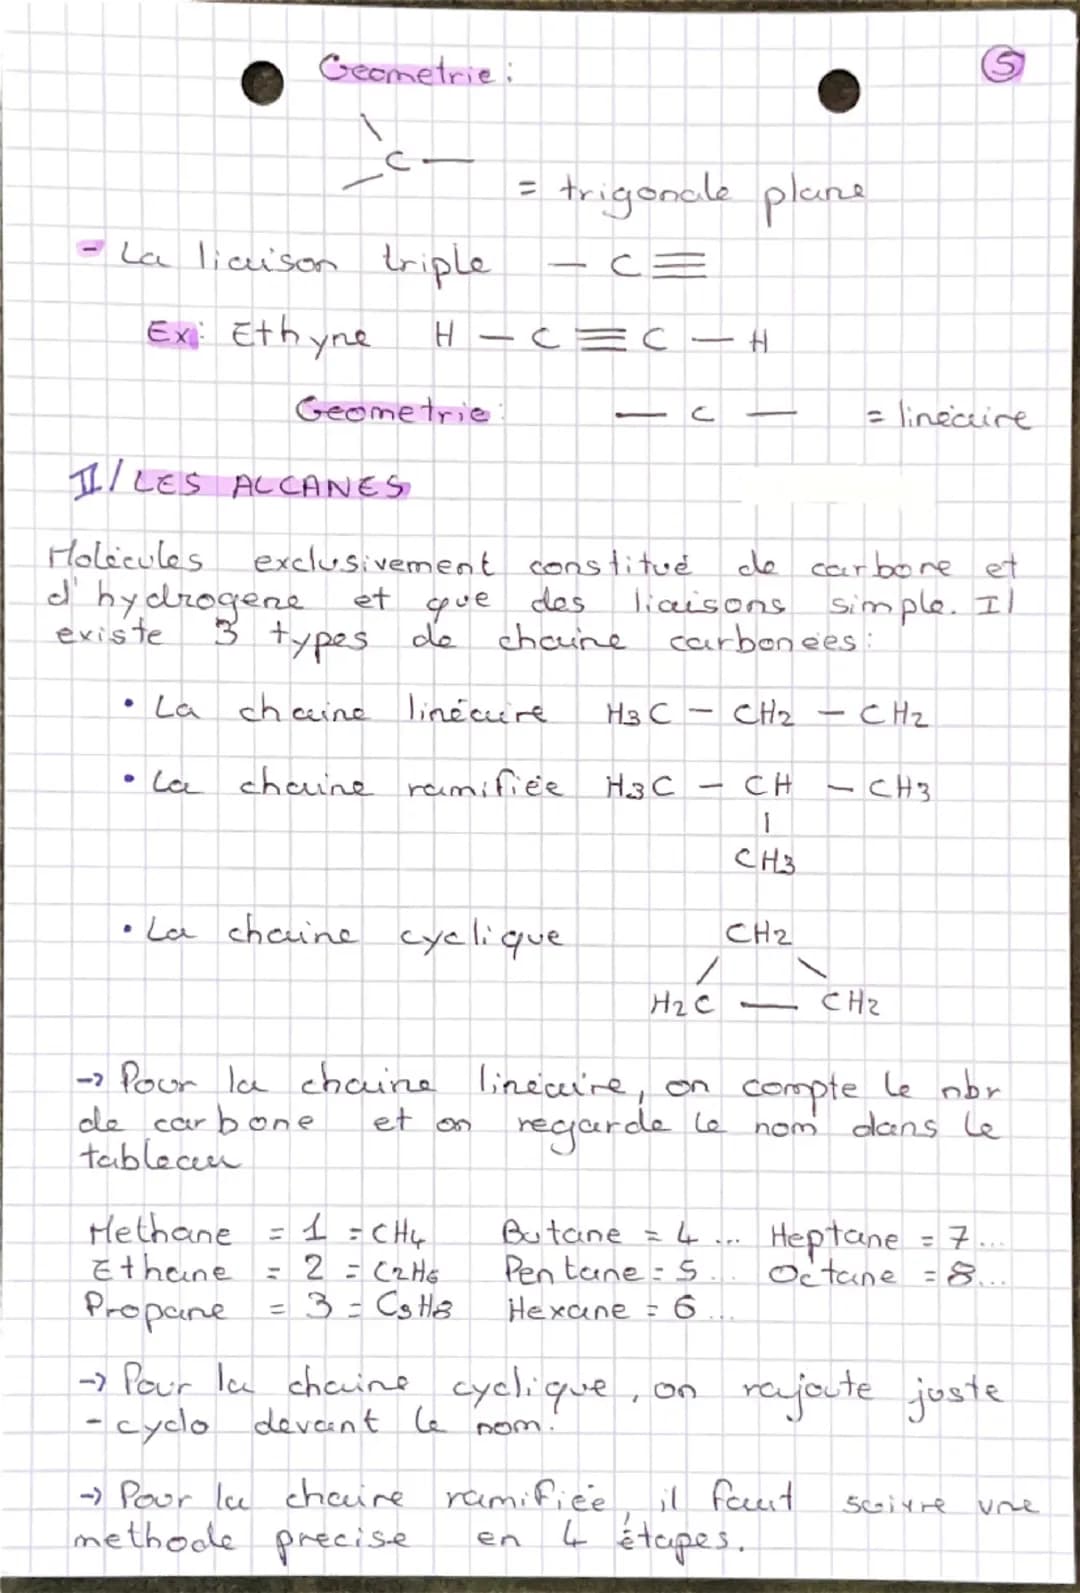 Geometrie :
5
\
C —
/
= trigonale plane
- La liaison triple — C ≡
Ex: Ethyne H — C ≡ C — H
Geometrie: — C — = linéaire
II/ LES ALCANES
Molécules exclusivement constitué de carbone et
d'hydrogene et que des liaisons simple. Il
existe 3 types de chaine carbonées:
• La chaine linéaire H3C - CH2 - CH2
• La chaine ramifiée H3C - CH - CH3
|
CH3
• La chaine cyclique CH2
/ \
H2C — CH2
-> Pour la chaine linéaire, on compte le nbr
de carbone et on regarde le nom dans le
tableau
Methane = 1 = CH4 Butane = 4 ... Heptane = 7...
Ethane = 2 = C2H6 Pentane = 5 ... Octane = 8...
Propane = 3 = C3H8 Hexane = 6 ...
-> Pour la chaine cyclique, on rajoute juste
-cyclo devant le nom.
-> Pour la chaire ramifiée, il faut suivre une
methode precise en 4 étapes.